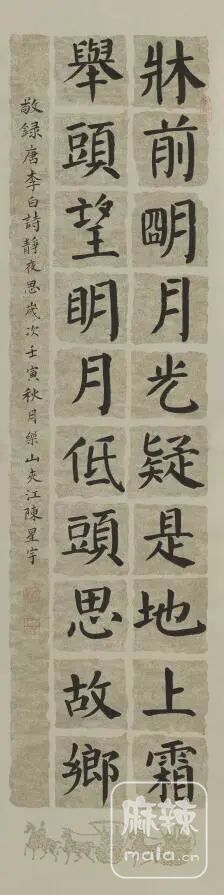 牀前明月光疑是地上霜
舉頭望明月低頭思故鄉
敬録唐李白詩靜夜思歲次壬寅秋月樂山夾江陳星宇
麻辣
mala.cn